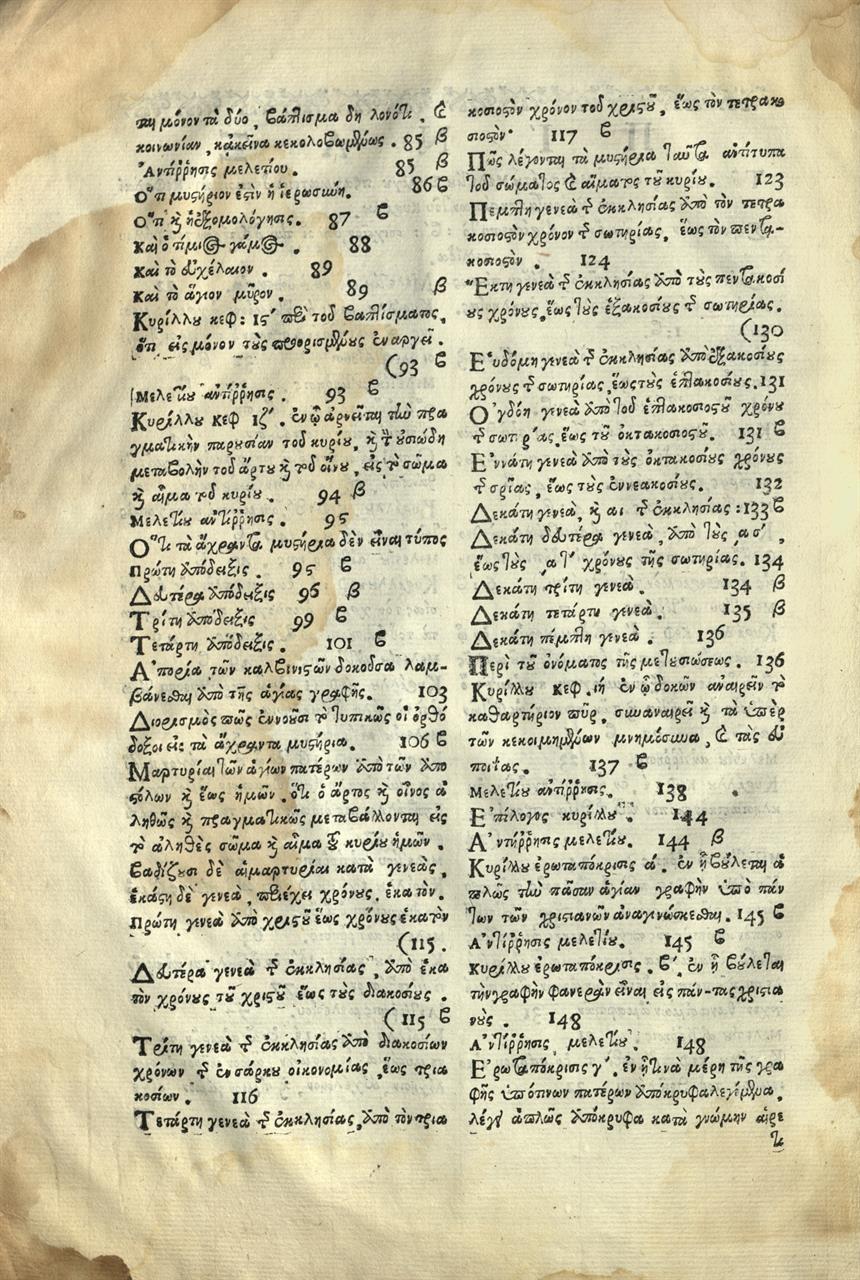 ται μόνον τὰ δύο, βάπτισμα δηλονότι, καὶ
κοινωνίαν, κἀκεῖνα κεκολοβωμένως. 85 β
Ἀντίῤῥησις μελετίου. 85 β
Ὅτι μυστήριον ἐστὶν ἡ ἱερωσύνη. 86 β
Ὅτι καὶ ἡ ἐξομολόγησις. 87 β
Καὶ ὁ τίμιος γάμος. 88
Καὶ τὸ εὐχέλαιον. 89
Καὶ τὸ ἅγιον μῦρον. 89 β
Κυρίλλου κεφ: ις′ περὶ τοῦ βαπτίσματος,
ὅτι εἰς μόνον τοὺς προορισμένους ἐνεργεῖ.
(93 β
Μελετίου ἀντίῤῥησις. 93 β
Κυρίλλου κεφ ιζ′. ἐν ᾧ ἀρνεῖται τὴν πρα
γματικὴν παρουσίαν τοῦ κυρίου, καὶ τὴν οὐσιώδη
μεταβολὴν τοῦ ἄρτου καὶ τοῦ οἴνου, εἰς τὸ σῶμα
καὶ αἷμα τοῦ κυρίου. 94 β
Μελετίου ἀντίῤῥησις. 95
Ὅτι τὰ ἄχραντα μυστήρια δὲν εἶναι τύπος
πρώτη ἀπόδειξις. 95 β
Δευτέρα ἀπόδειξις 96 β
Τρίτη ἀπόδειξις 99 β
Τετάρτη ἀπόδειξις. 101 β
Ἀπορία τῶν καλβινιστῶν δοκοῦσα λαμ-
βάνεσθαι ἀπὸ τῆς ἁγίας γραφῆς. 103
Διορισμὸς πῶς ἐννοοῦσι τὸ τυπικῶς οἱ ὀρθό
δοξοι εἰς τὰ ἄχραντα μυστήρια. 106 β
Μαρτυρίαι τῶν ἁγίων πατέρων ἀπὸ τῶν ἀπο
στόλων καὶ ἕως ἡμῶν, ὅτι ὁ ἄρτος καὶ οἶνος ἀ
ληθῶς καὶ πραγματικῶς μεταβάλλονται εἰς
τὸ ἀληθὲς σῶμα καὶ αἷμα τοῦ κυρίου ἡμῶν.
βαδίζουσι δὲ αἱ μαρτυρίαι κατὰ γενεὰς,
ἑκάστη δὲ γενεὰ, περιέχει χρόνους, ἑκατὸν.
Πρώτη γενεὰ ἀπὸ χριστοῦ ἕως χρόνους ἑκατὸν
(115.
Δευτέρα γενεὰ τῆς ἐκκλησίας, ἀπὸ ἑκα
τὸν χρόνους τοῦ χριστοῦ ἕως τοὺς διακοσίους.
(115 β
Τρίτη γενεὰ τῆς ἐκκλησίας ἀπὸ διακοσίων
χρόνων τῆς ἐνσάρκου οἰκονομίας, ἕως τρια
κοσίων. 116
Τετάρτη γενεὰ τῆς ἐκκλησίας, ἀπὸ τὸν τρια
κοσιοστὸν χρόνον τοῦ χριστοῦ, ἕως τὸν τετρακο
σιοστὸν· 117 β
Πῶς λέγονται τὰ μυστήρια ταῦτα ἀντίτυπα
τοῦ σώματος καὶ αἵματος τοῦ κυρίου. 123
Πέμπτη γενεὰ τῆς ἐκκλησίας ἀπὸ τὸν τετρα
κοσιοστὸν χρόνον τῆς σωτηρίας, ἕως τὸν πεντα-
κοσιοστὸν. 124
Ἕκτη γενεὰ τῆς ἐκκλησίας ἀπὸ τοὺς πεντακοσί
ους χρόνους, ἕως τοὺς ἑξακοσίους τῆς σωτηρίας.
(130
Ἑυδόμη γενεὰ τῆς ἐκκλησίας ἀπὸ ἑξακοσίους
χρόνους τῆς σωτηρίας, ἕως τοὺς ἑπτακοσίους. 131
Ὀγδόη γενεὰ ἀπὸ τοῦ ἑπτακοσιοστοῦ χρόνου
τῆς σωτηρίας, ἕως τοῦ ὀκτακοσιοστοῦ. 131 β
Ἐννάτη γενεὰ ἀπὸ τοὺς ὀκτακοσίους χρόνους
τῆς σρίας, ἕως τοὺς ἐννεακοσίους. 132
Δεκάτη γενεὰ, τῆς ἐκκλησίας: 133 β
Δεκάτη δευτέρα γενεὰ, ἀπὸ τοὺς ͵ας′,
ἕως τοὺς ͵ατ′ χρόνους τῆς σωτηρίας. 134
Δεκάτη τρίτη γενεὰ. 134 β
Δεκάτη τετάρτη γενεὰ. 135 β
Δεκάτη πέμπτη γενεὰ. 136
Περὶ τοῦ ὀνόματος τῆς μετουσιώσεως. 136
Κυρίλλου κεφ. ιή ἐν ᾧ δοκῶν ἀναιρεῖν τὸ
καθαρτήριον πῦρ, συναναιρεῖ καὶ τὰ ὑπὲρ
τῶν κεκοιμημένων μνημόσυνα, καὶ τὰς εὐ
ποιΐας. 137 β
Μελετίου ἀντίῤῥησις. 138
Ἐπίλογος κυρίλλου. 144
Ἀντίῤῥησις μελετίου. 144 β
Κυρίλλου ἐρωταπόκρισις ά. ἐν ᾗ βούλεται ἁ
πλῶς τὴν πᾶσαν ἁγίαν γραφὴν ὑπὸ πάν
των τῶν χριστιανῶν ἀναγινώσκεσθαι. 145 β
Ἀντίῤῥησις μελετίου. 145 β
Κυρίλλου ἐρωταπόκρισις. β′. ἐν ᾗ βούλεται
τὴν γραφὴν φανερὰν εἶναι εἰς πάν-τας χριστια
νοὺς. 148
Ἀντίῤῥησις, μελετίου. 148
Ἐρωταπόκρισις γ′. ἐν ᾗ τινὰ μέρη τῆς γρα
φῆς ὑπό τινων πατέρων ἀπόκρυφα λεγόμενα,
λέγει ἁπλῶς ἀπόκρυφα κατὰ γνώμην αἱρε
τι